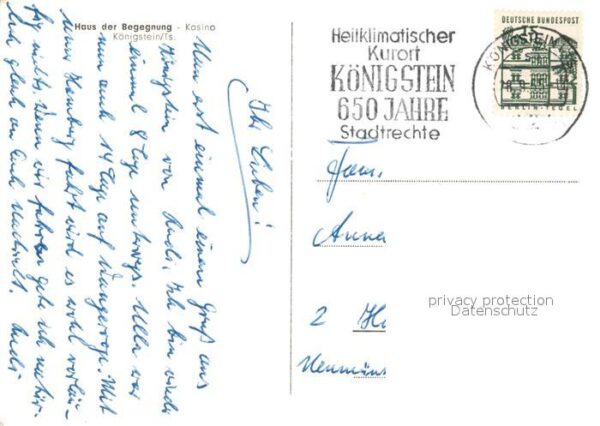 Haus der Begegnung - Kasino
Königstein/Ts.
Ihr Lieben!
Nun erst einmal einen Gruß aus
Königstein von Rudi, Ich bin wieder
einmal 8 Tage unterwegs. Ulla war
nun auch 14 Tage auf Wangerooge. Mit
eurer Hamburg fahrt wird es wohl vorläu-
fig nichts, denn wir fahren gehe ich natür-
lich gleich an Euch
Rudi
Heilklimatischer
Kurort
KÖNIGSTEIN
650 JAHRE
Stadtrechte
DEUTSCHE BUNDESPOST
KÖNIGSTEIN
BERLIN-TEGEL
Fam.
Anna
privacy protection
Datenschutz
2 H
Neumüns